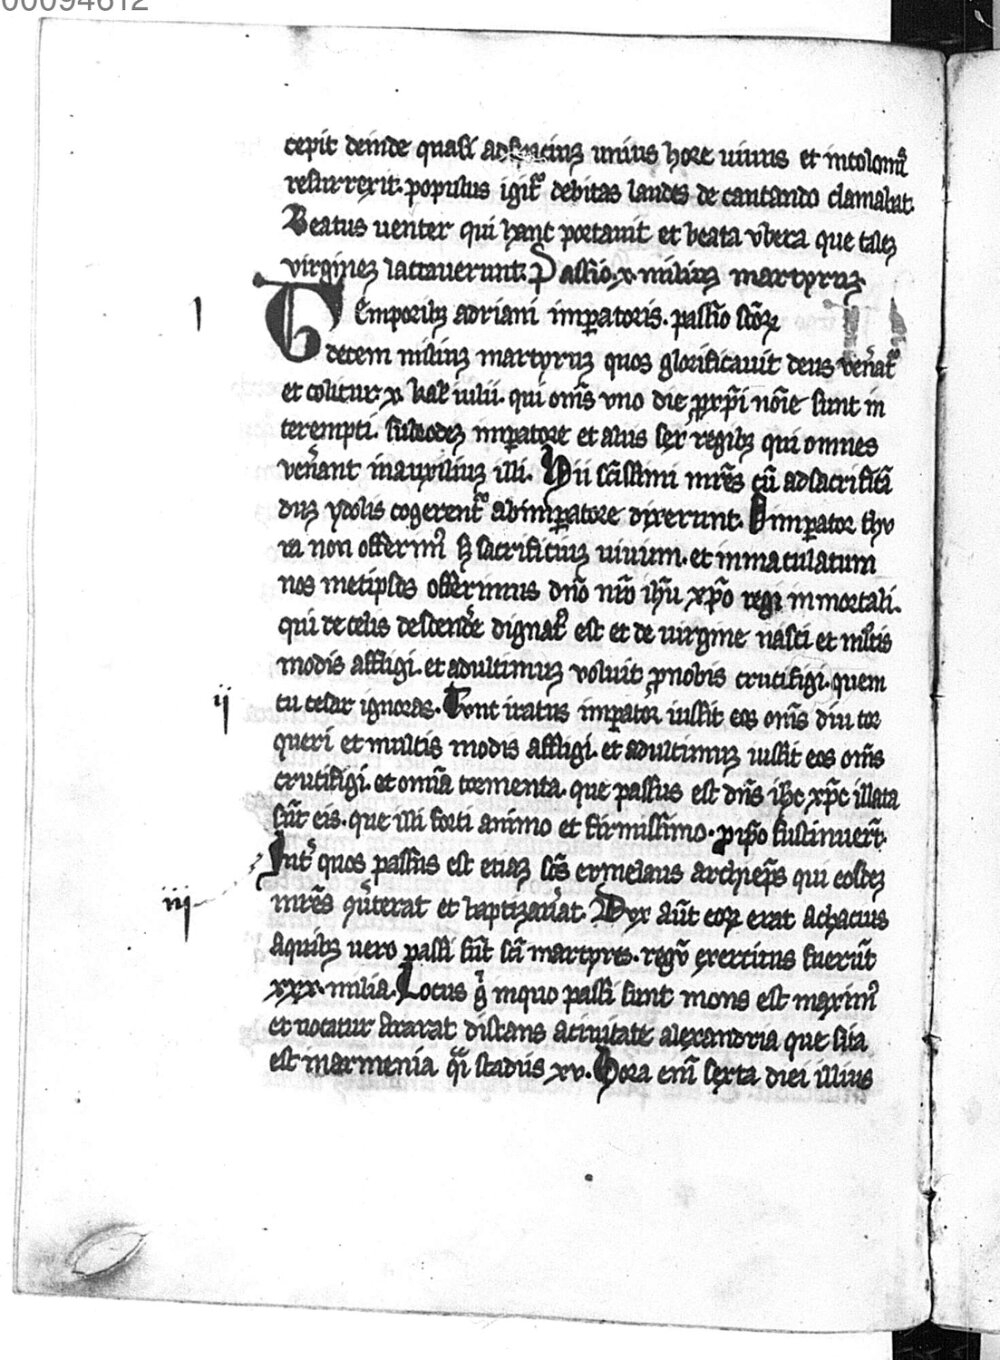 00094612
cepit deinde quasi ad spaciuz unius hore uiuus et incolomꝰ
resurrexit. populus igit᷑ debitas laudes de cantando clamabat.
Beatus uenter qui hanc portauit et beata vbera que talez
virginez lactauerunt. Passio .x. miliuz martyruz.
I
TEmporibꝫ adriani imꝑatoris. passio sc̄oꝝ
decem miliuz martyruz quos glorificauit deus ven̄at᷑
et colitur .x. kal' iulii. qui om̄s vno die ꝓ xp̄i no͞ie sunt in
terempti. sub eodez imꝑatore et aliis sex regibꝫ qui omnes
ven̄ant in auxiliuz illi. Hii sc̄issimi mr̄es cū ad sacrificā
duz ydolis cogerent᷑ ab imꝑatore dixerunt. O imꝑator thu
ra non offerimꝰ sꝫ sacrificiuz uiuum. et inmaculatum
nos metipsos offerimus dn̄o nr̄o ih̄u xp̄o regi inmortali.
qui de celis descende᷑ dignat᷑ est et de uirgine nasci et ml̄tis
modis affligi. et ad ultimuz voluit ꝓ nobis crucifigi. quem
ij
tu cesar ignoras. Tunc iratus imꝑator iussit eos om̄s diu tor
queri et multis modis affligi. et ad ultimuz iussit eos om̄s
crucifigi. et omīa tormenta. que passus est dn̄s ih̄c xp̄c illata
sūt eis. que illi forti animo et firmissimo. ꝓ ip̄o sustinuer̄t.
Int᷑ quos passus est etiaz sc̄s ermelaus archiep̄s qui eosdez
iij
mr̄es ꝯūterat et baptizau᷑at. Dux aūt eoꝝ erat achacius
a quibꝫ uero passi sūt sc̄i martyres. regū exercitus fuerūt
xxx. milia. Locus gͦ in quo passi sunt mons est maximꝰ
et uocatur ararat distans a ciuitate alexandria que sita
est in armenia qͣi stadiis xv. Hora enī sexta diei illius